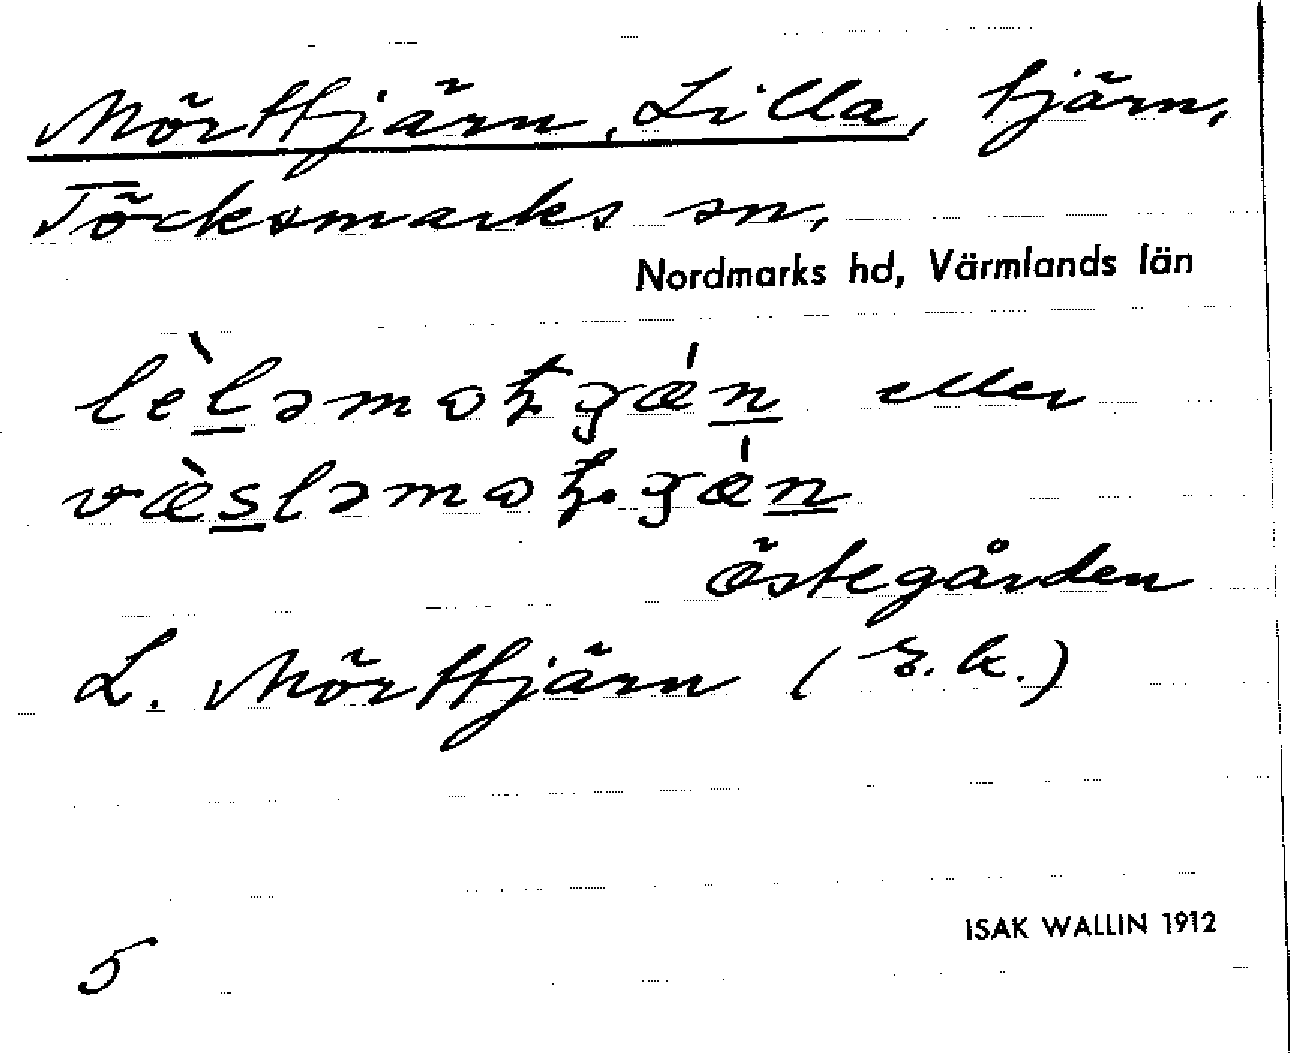 Mörttjärn, Lilla, tjärn,
Töcksmarks sn,
Nordmarks hd, Värmlands län
eller
östegården
L. Mörttjärn (r.k.)
ISAK WALLIN 1912
5